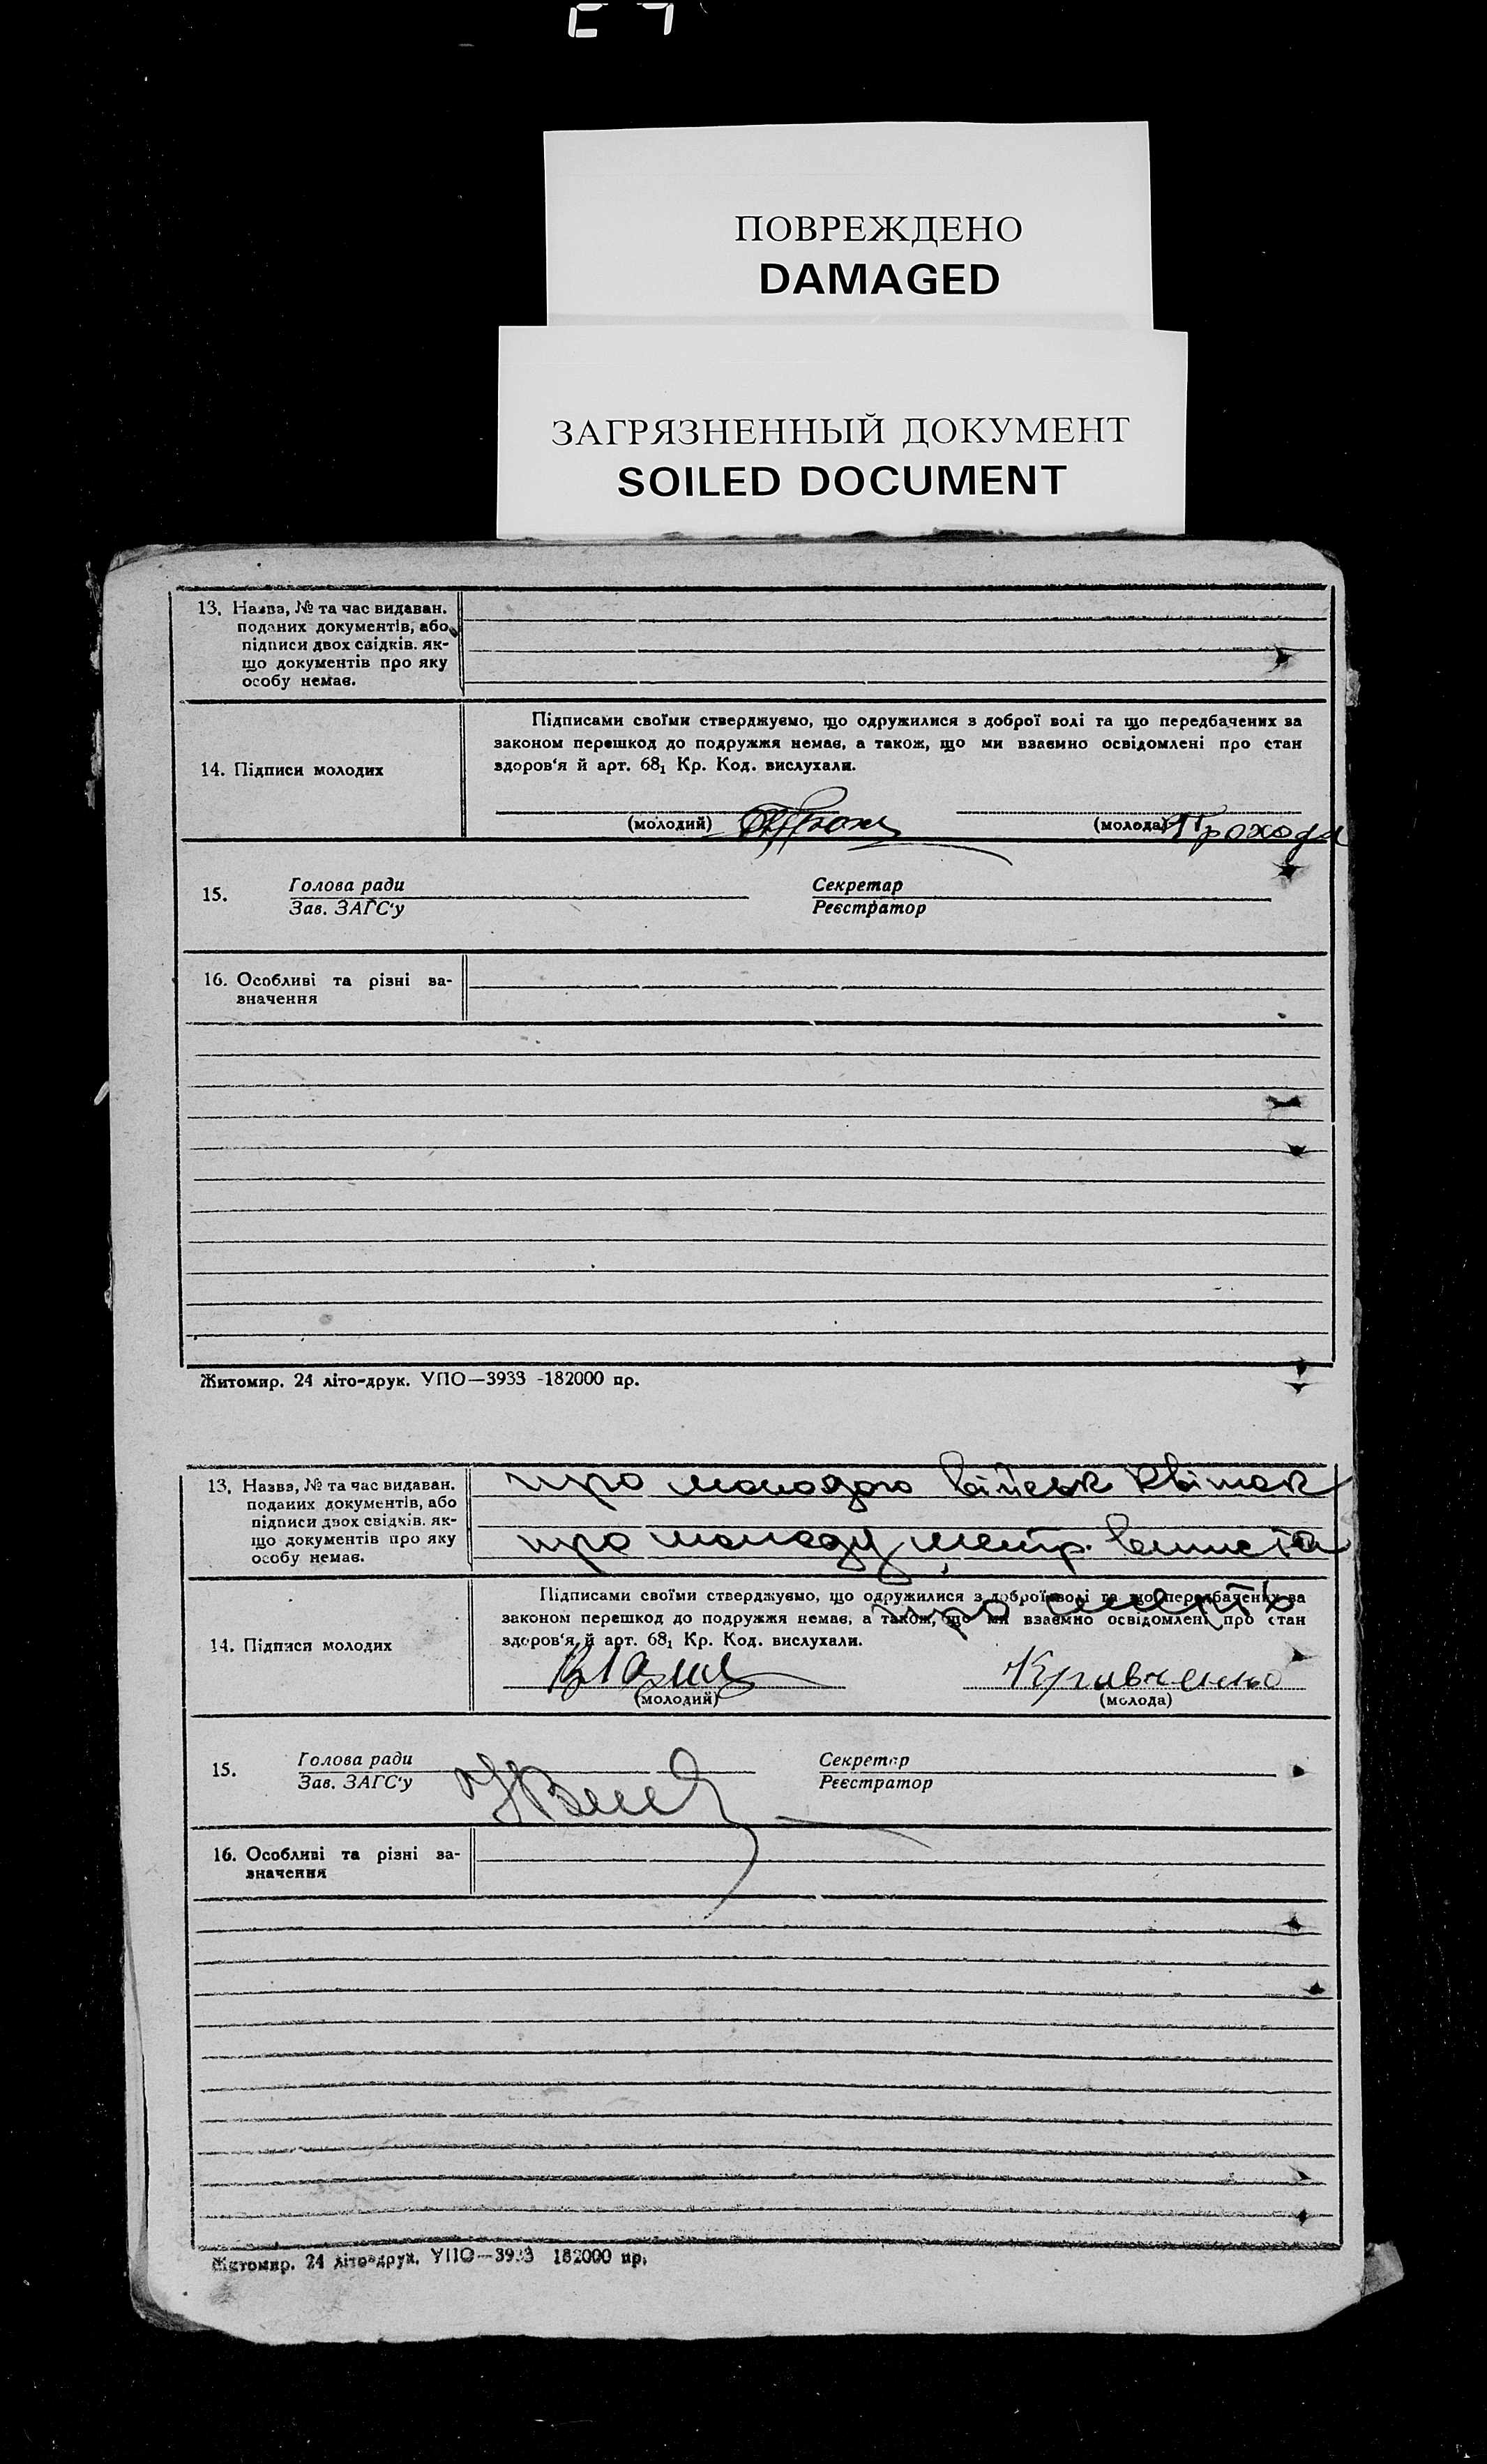 ПОВРЕЖДЕНО
DAMAGED
ЗАГРЯЗНЕННЫЙ ДОКУМЕНТ
SOILED DOCUMENT
13. Назва, № та час видаван.
поданих документів, або
підписи двох свідків. як-
що документів про яку
особу немає.
Підписами своїми стверджуємо, що одружилися з доброї волі та що передбачених за
законом перешкод до подружжя немає, а також, що ми взаємно освідомлені про стан
здоров'я й арт. 68₁ Кр. Код. вислухали.
14. Підписи молодих
(молодий) (молода) Прохода
15. Голова ради Секретар
Зав. ЗАГС'у Реєстратор
16. Особливі та різні за-
значення
Житомир. 24 літо-друк. УПО—3933 -182000 пр.
13. Назва, № та час видаван.
поданих документів, або
підписи двох свідків. як-
що документів про яку
особу немає.
про молодого військ квиток
про молоду метр. виписка
про
Підписами своїми стверджуємо, що одружилися з доброї волі та що передбачених за
законом перешкод до подружжя немає, а також, що ми взаємно освідомлені про стан
здоров'я й арт. 68₁ Кр. Код. вислухали.
14. Підписи молодих
Кравченко
(молодий) (молода)
15. Голова ради Секретар
Зав. ЗАГС'у Реєстратор
16. Особливі та різні за-
значення
Житомир. 24 літо-друк. УПО—3933 182000 пр.